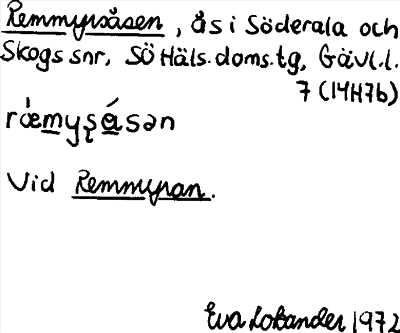 Remmyrsåsen, ås i Söderala och
Skogs snr, SÖ Häls. doms.tg, Gävl.l.
7 (14H7b)
ræ̀myʂásən
Vid Remmyran.
Eva Lokander 1972